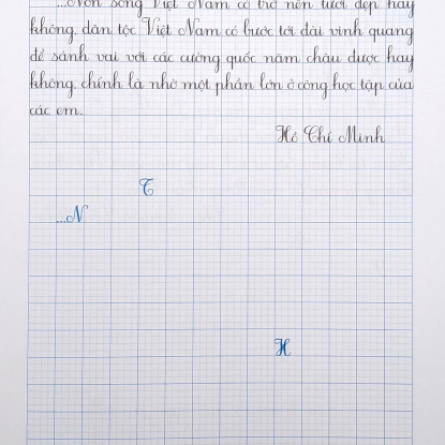 ...Non sông Việt Nam có trở nên tươi đẹp hay
không, dân tộc Việt Nam có bước tới đài vinh quang
để sánh vai với các cường quốc năm châu được hay
không, chính là nhờ một phần lớn ở công học tập của
các em.
Hồ Chí Minh
T
...N
H